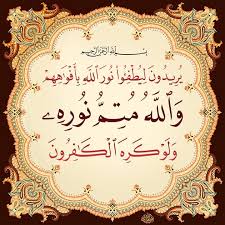 بِسْمِ اللهِ الرَّحْمٰنِ الرَّحِيْمِ
يُرِيدُونَ لِيُطْفِئُوا نُورَ ٱللَّهِ بِأَفْوَٰهِهِمْ
وَٱللَّهُ مُتِمُّ نُورِهِۦ
وَلَوْ كَرِهَ ٱلْكَٰفِرُونَ